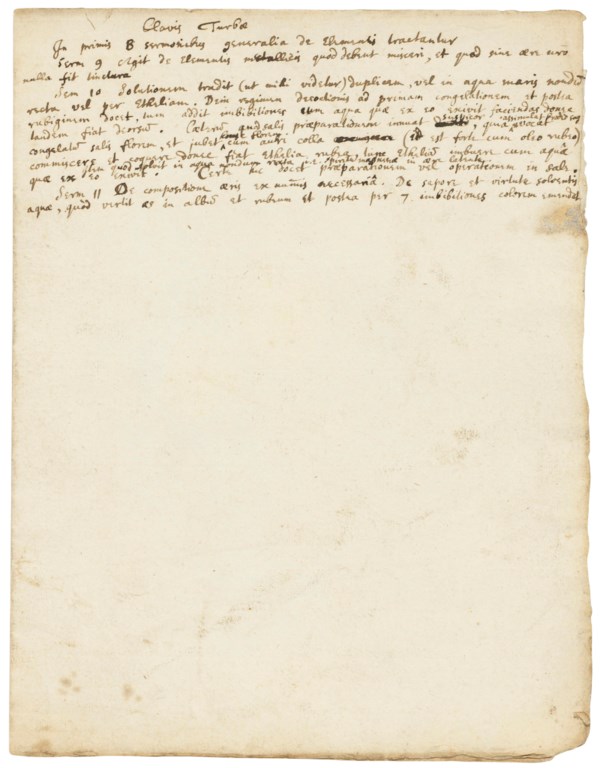 Clavis Turbæ
In primis 8 sermonibus generalia de Elementis tractantur
Serm 9 Agit de Elementis metallicis quod debent misceri, et quod sine ære uro
nulla fit tinctura
Sem 10 Solutionem tradit (ut mihi videtur) duplicem, vel in aqua maris mondum
recta vel per Etheliam. Dein regimen decoctionis ad primam congelationem et postea
rubiginem docet, tum addit imbibitiones cum aqua quæ ex eo exivit faciendas donec
tandem fiat deorsum. Cæterum salis præparationem innuit suspicor, quem vocat
congelatum salis florem, et jubet hunc florem cum auri colla (id est forte cum oleo rubeo)
commiscere et coquere donec fiat Ethelia rubea tunc Etheliam imbuere cum aqua
quæ ex eo exivit. Certe hic docet præparationem vel operationem in sale.
Serm 11 De compositione æris ex nummis necessaria. De sapore et virtute solventis
aquæ, quod vertit æs in album et rubrum et postea per 7 imbibitiones colorem emendat.